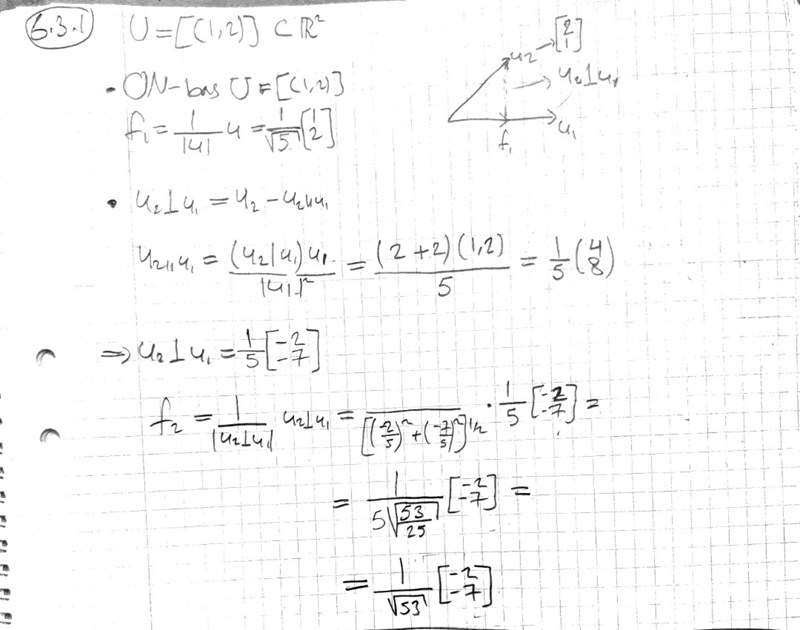 6.3.1 U = [(1,2)] ⊂ ℝ²
u₂ → [2 1]
u₂⊥u₁
f₁ u₁
• ON-bas U = [(1,2)]
f₁ = 1/|u| u = 1/√5 [1 2]
• u₂⊥u₁ = u₂ - u₂∥u₁
u₂∥u₁ = (u₂|u₁)u₁/|u₁|² = (2+2)(1,2)/5 = 1/5 (4 8)
⇒ u₂⊥u₁ = 1/5 [-2 -7]
f₂ = 1/|u₂⊥u₁| u₂⊥u₁ = /[(-2/5)² + (-7/5)²]^1/2 · 1/5 [-2 -7] =
= 1/(5√(53/25)) [-2 -7] =
= 1/√53 [-2 -7]